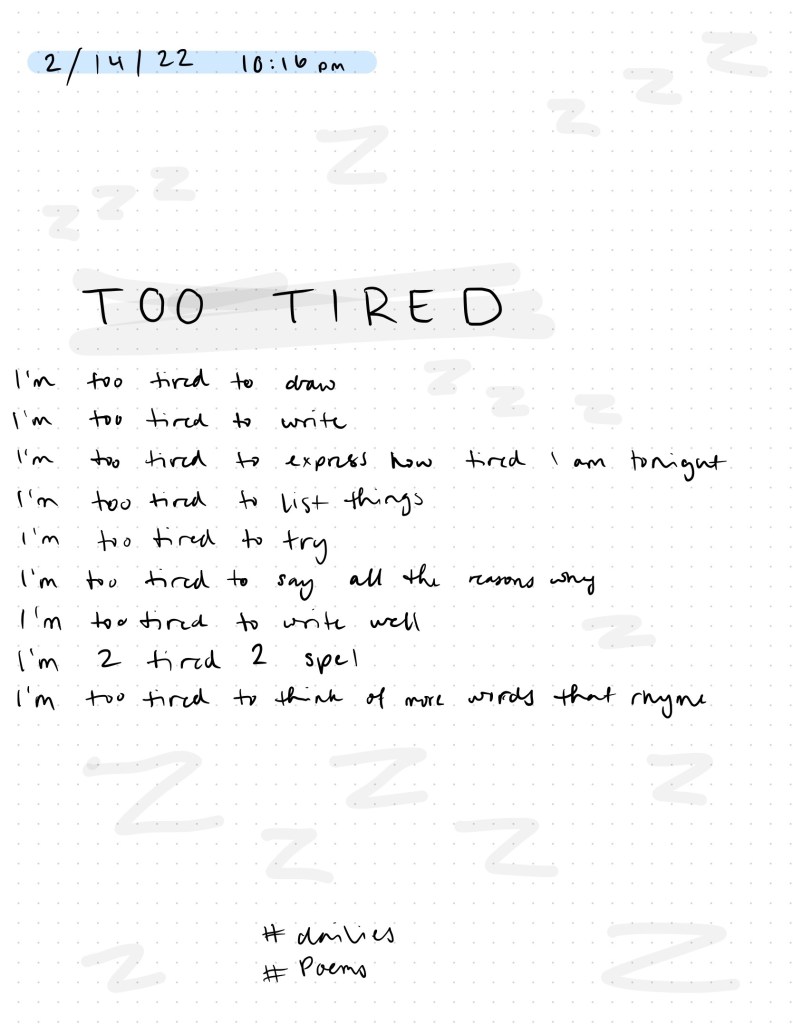 2/14/22 10:16 pm
TOO TIRED
I'm too tired to draw
I'm too tired to write
I'm too tired to express how tired I am tonight
I'm too tired to list things
I'm too tired to try
I'm too tired to say all the reasons why
I'm too tired to write well
I'm 2 tired 2 spel
I'm too tired to think of more words that rhyme
# dailies
# Poems